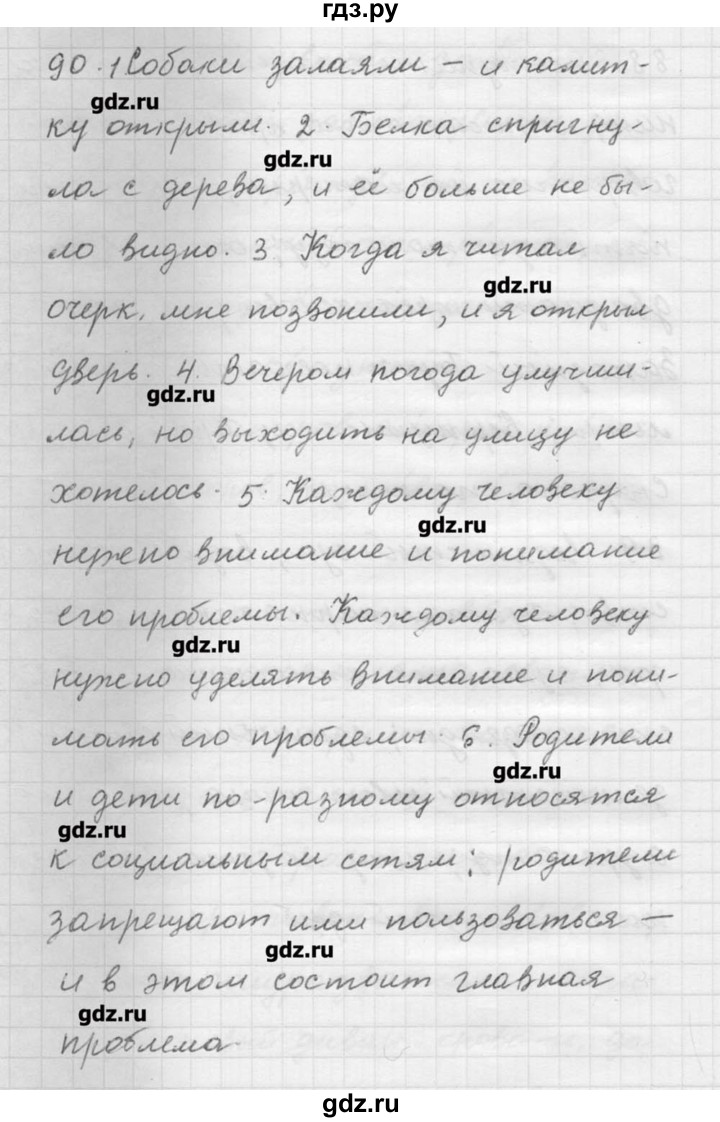 гдз.ру
90. 1 Собаки залаяли – и калит-
gdz.ru
ку открыли. 2. Белка спрыгну-
gdz.ru
ла с дерева, и её больше не бы-
ло видно. 3 Когда я читал
gdz.ru
очерк, мне позвонили, и я открыл
дверь. 4. Вечером погода улучши-
gdz.ru
лась, но выходить на улицу не
хотелось. 5. Каждому человеку
gdz.ru
нужно внимание и понимание
его проблемы. Каждому человеку
gdz.ru
нужно уделять внимание и пони-
мать его проблемы. 6. Родители
gdz.ru
и дети по-разному относятся
gdz.ru
к социальным сетям: родители
запрещают ими пользоваться –
gdz.ru
и в этом состоит главная
gdz.ru
проблема.
gdz.ru